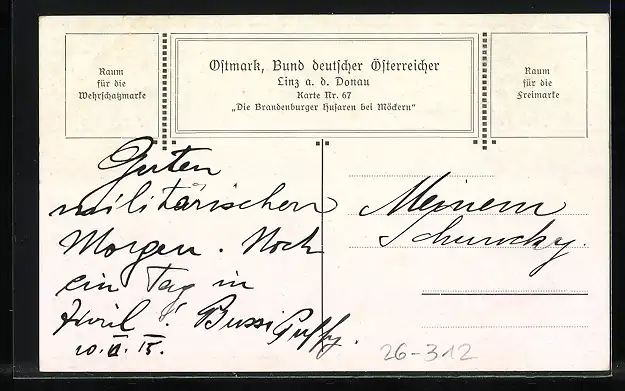 Raum
für die
Wehrschatzmarke
Ostmark, Bund deutscher Österreicher
Linz a. d. Donau
Karte Nr. 67
„Die Brandenburger Husaren bei Möckern“
Raum
für die
Freimarke
Guten
militärischen
Morgen. Noch
ein Tag in
Zivil! Bussi
Meinem
26-312